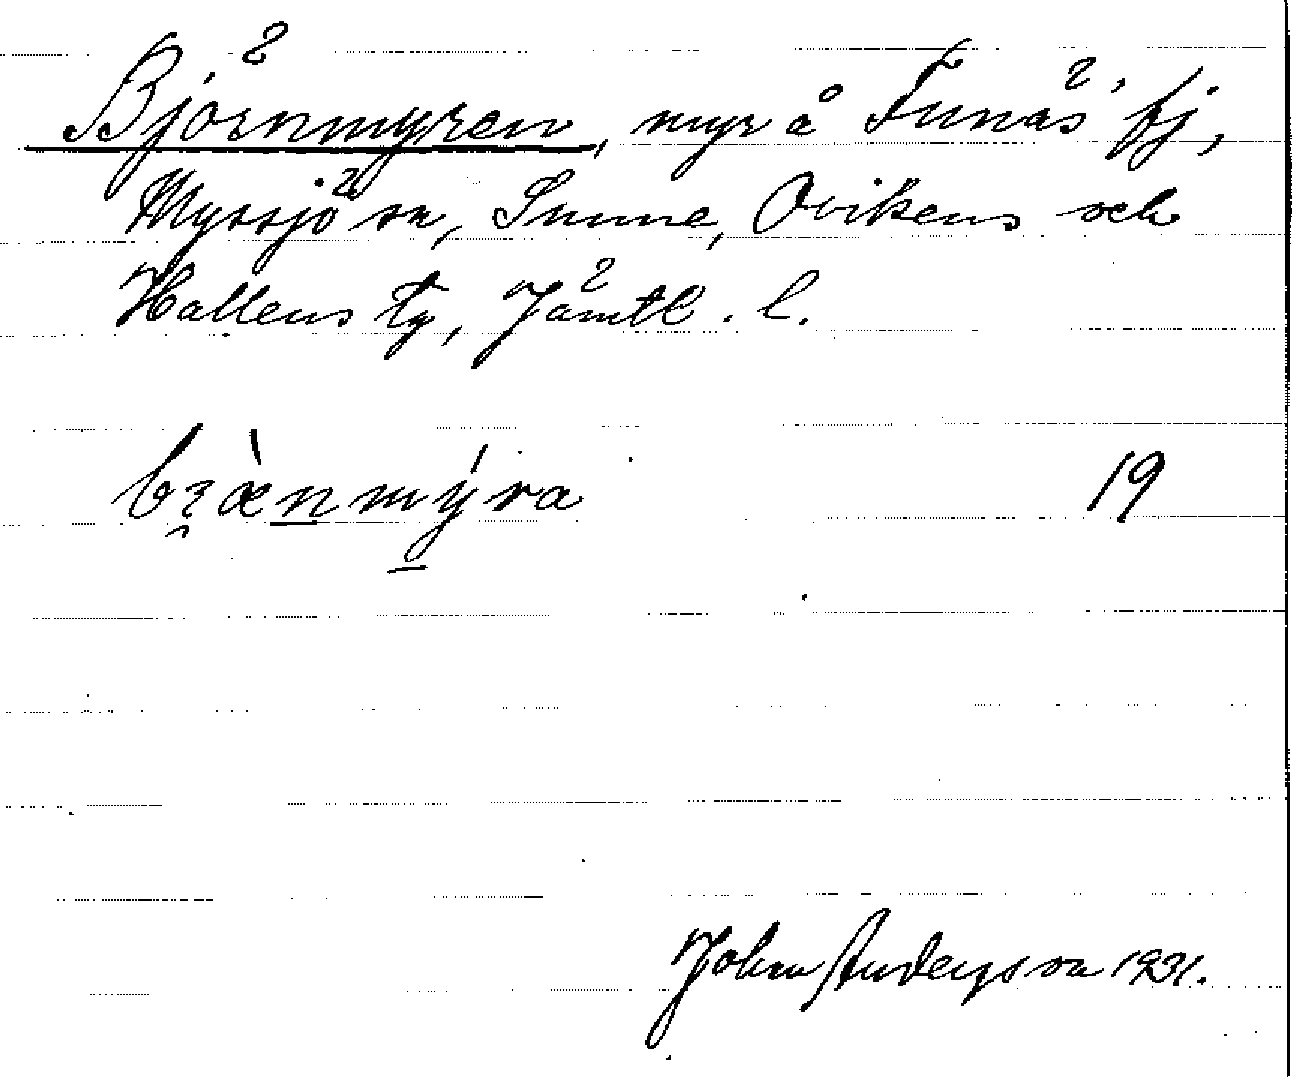 Björnmyren, myr å Funäs' fj,
Myssjö sn, Sunne, Ovikens och
Hallens tg, Jämtl. l.
bræ̀nmýra 19
John Anderson 1931.